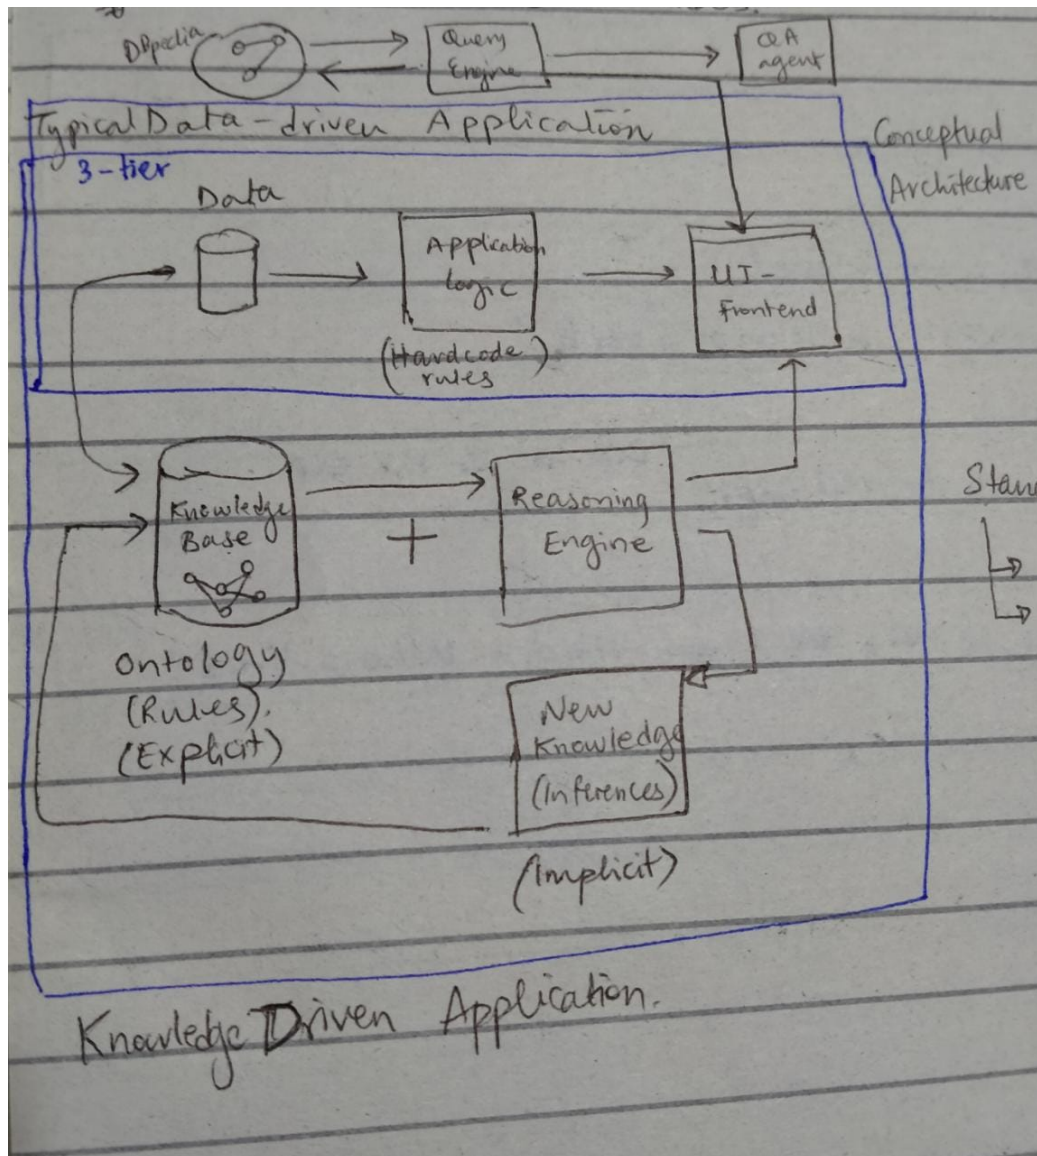 DBpedia
Query
Engine
QA
agent
Typical Data-driven Application
Conceptual
Architecture
3-tier
Data
Application
Logic
(Hardcode)
rules
UI-
Frontend
Knowledge
Base
+
Reasoning
Engine
Ontology
(Rules).
(Explicit)
New
Knowledge
(Inferences)
(Implicit)
Knowledge Driven Application.